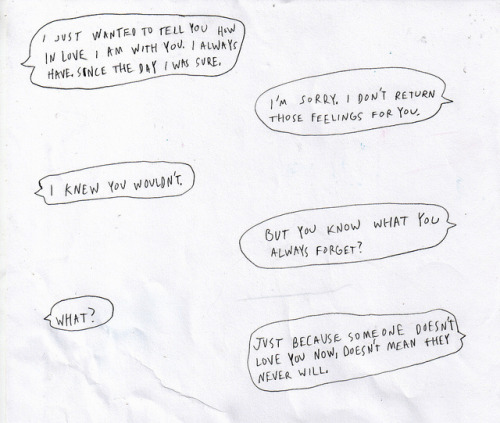 I JUST WANTED TO TELL YOU HOW
IN LOVE I AM WITH YOU. I ALWAYS
HAVE. SINCE THE DAY I WAS SURE.
I'M SORRY. I DON'T RETURN
THOSE FEELINGS FOR YOU.
I KNEW YOU WOULDN'T.
BUT YOU KNOW WHAT YOU
ALWAYS FORGET?
WHAT?
JUST BECAUSE SOMEONE DOESN'T
LOVE YOU NOW, DOESN'T MEAN THEY
NEVER WILL.